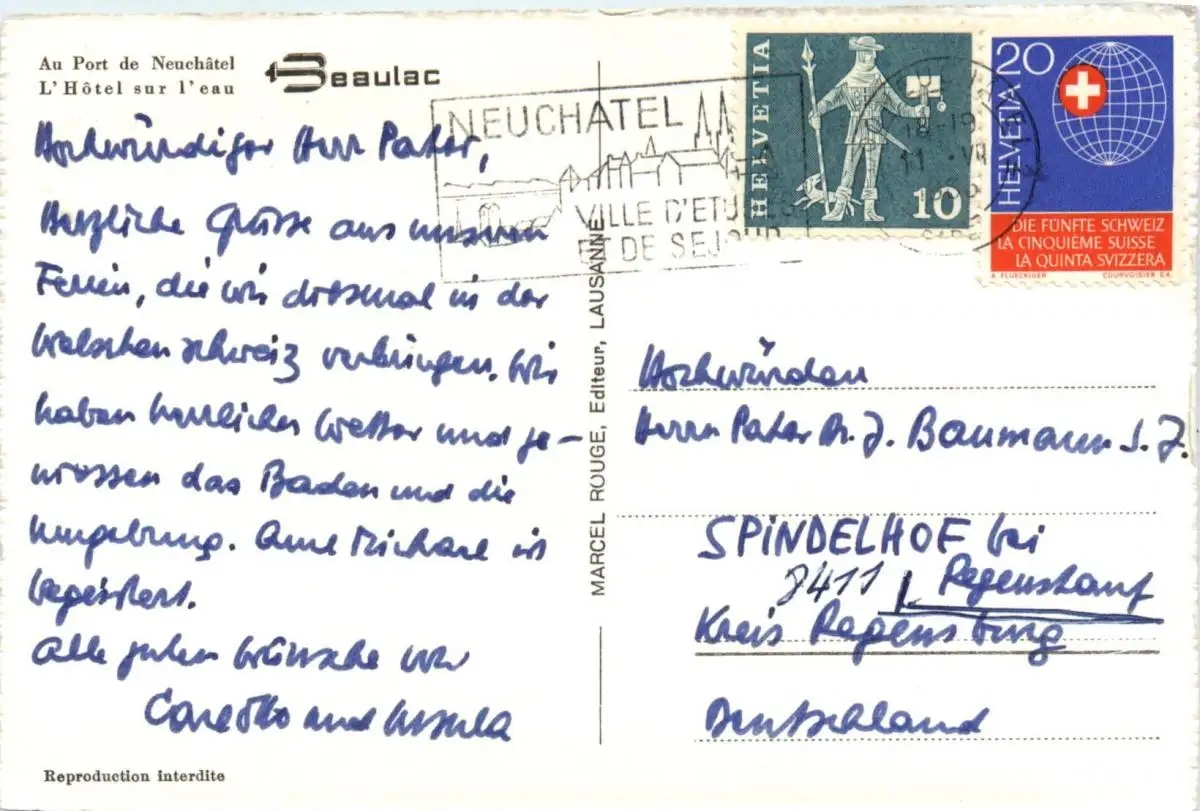 Au Port de Neuchâtel
L'Hôtel sur l'eau
Beaulac
Hochwürdiger Herr Pater,
Herzliche Grüsse aus unseren
Ferien, die wir diesmal in der
Welschen Schweiz verbringen. Wir
haben herrliches Wetter und ge-
niessen das Baden und die
Umgebung. Auch Michael ist
begeistert.
Alle guten Wünsche von
Carl Otto und Ursula
Reproduction interdite
MARCEL ROUGE, Editeur, LAUSANNE
NEUCHATEL
VILLE D'ETUDES
ET DE SEJOUR
HELVETIA
10
20
HELVETIA
DIE FÜNFTE SCHWEIZ
LA CINQUIÈME SUISSE
LA QUINTA SVIZZERA
A. FLUECKIGER COURVOISIER S.A.
Hochwürden
Herrn Pater Dr. J. Baumann S.J.
SPINDELHOF bei
8411 Regenstauf
Kreis Regensburg
Deutschland